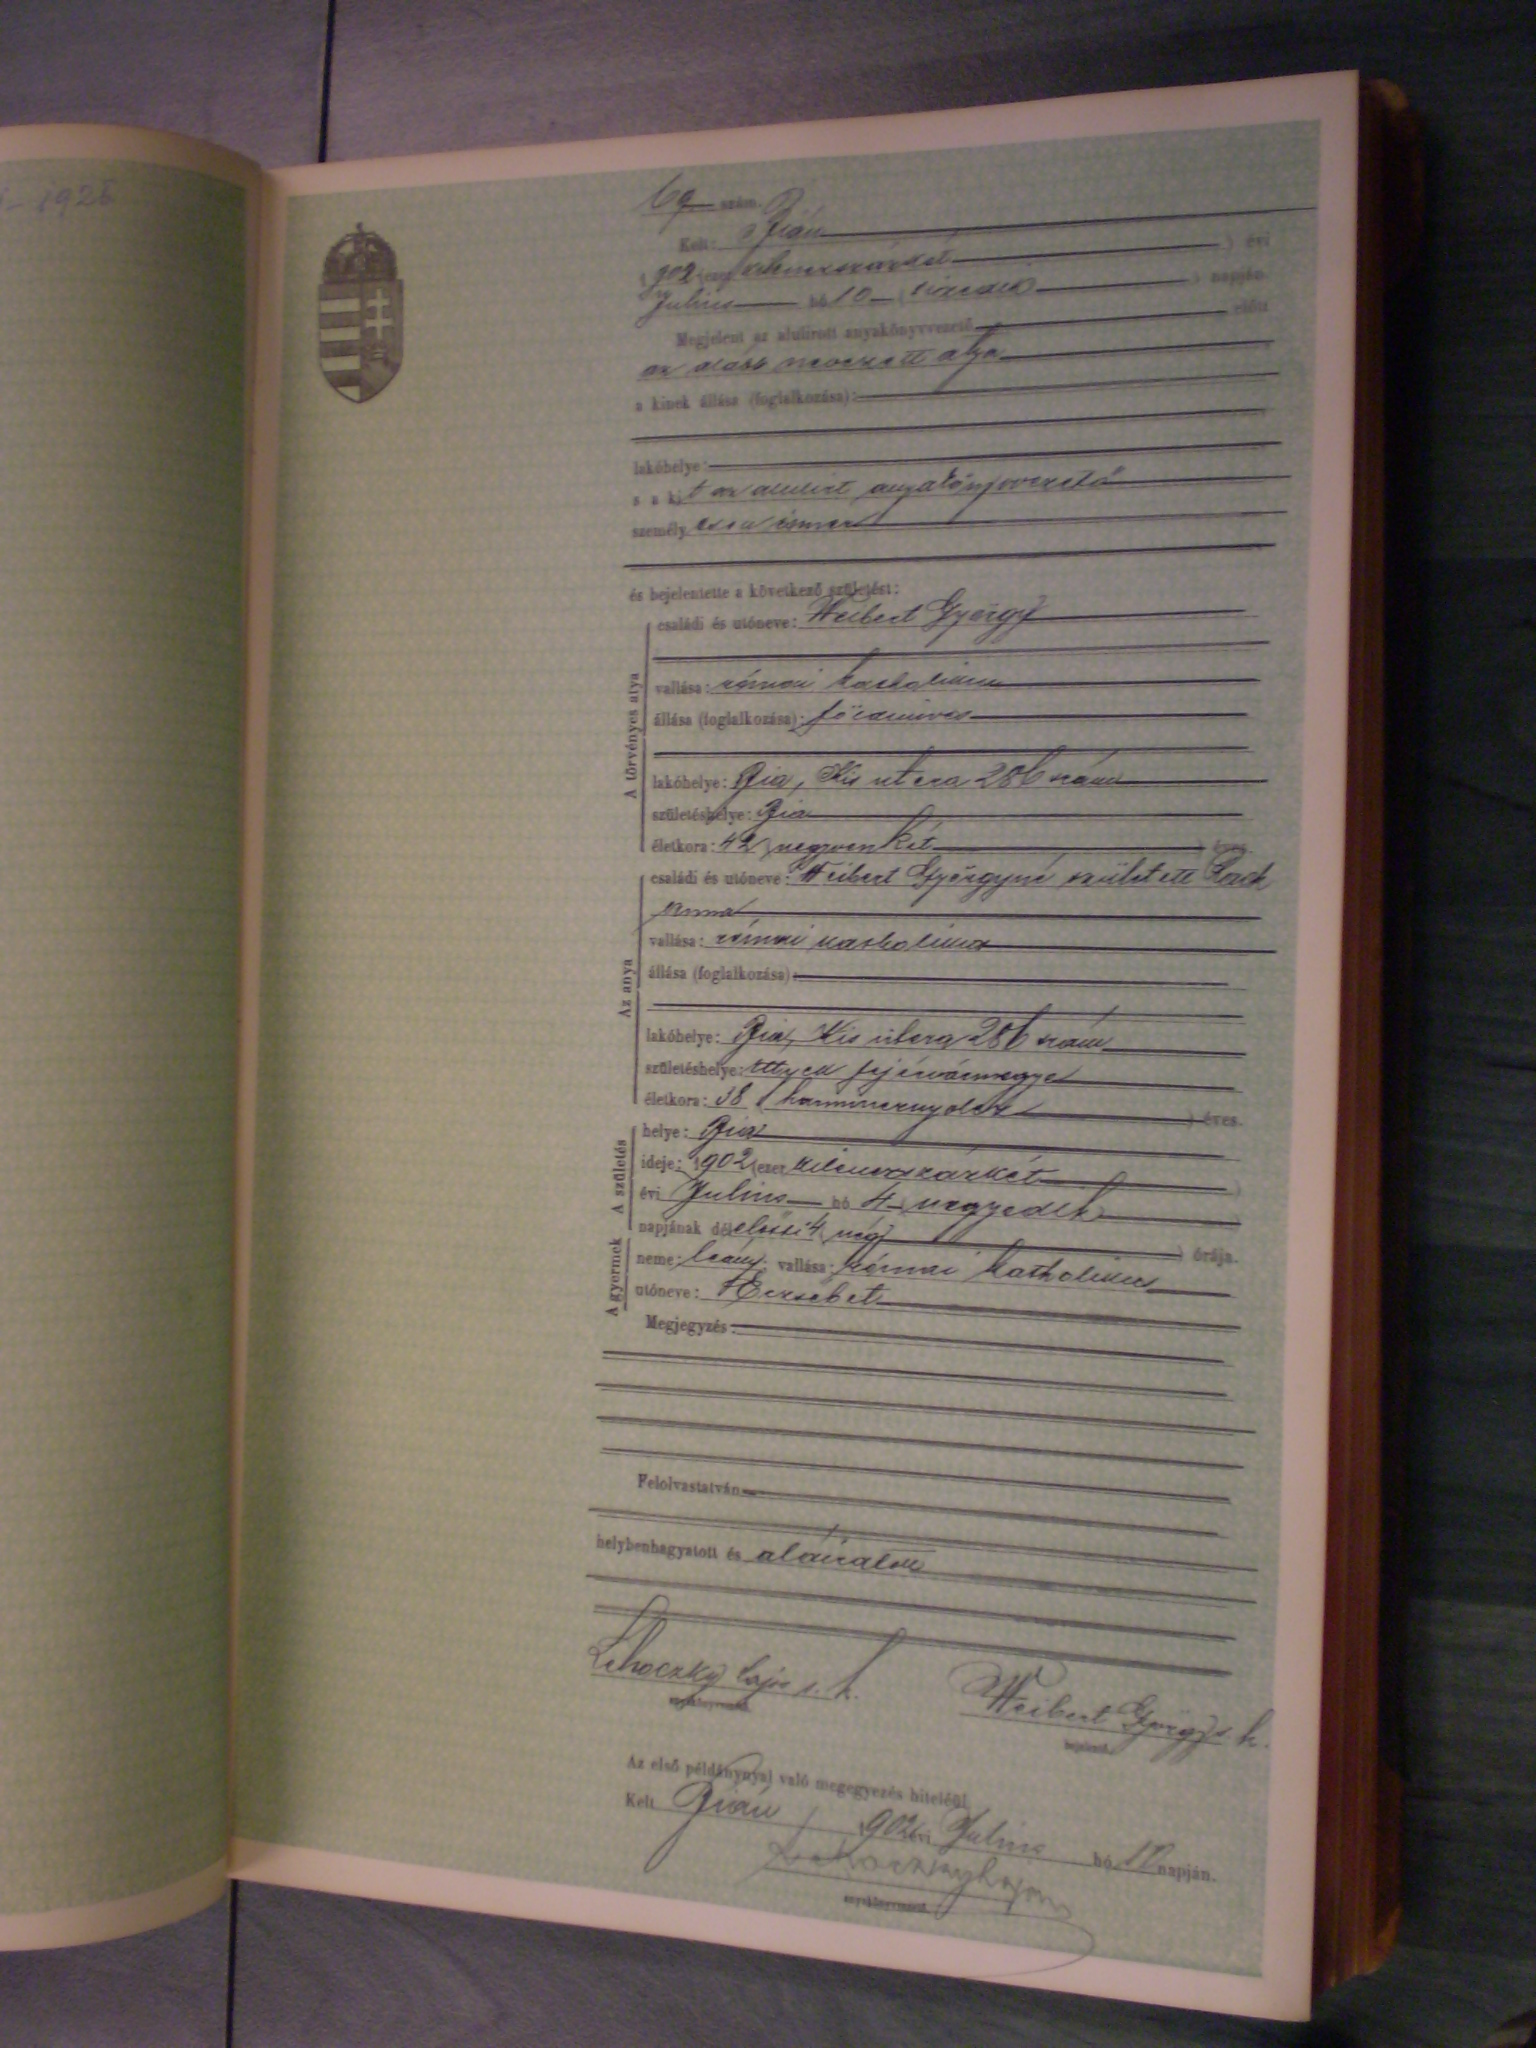 69 szám.
Kelt: Bián
1902 (ezer kilenczszázkét ) évi
Julius hó 10 (tizedik ) napján.
Megjelent az alulírott anyakönyvvezető előtt
az alább nevezett atya
a kinek állása (foglalkozása):
lakóhelye:
s a kit az alulirt anyakönyvvezető
személyesen ismer
és bejelentette a következő születést:
A törvényes atya
családi és utóneve: Weibert György
vallása: római katholikus
állása (foglalkozása): földmíves
lakóhelye: Bia, Kis utcza 286 szám
születéshelye: Bia
életkora: 42 (negyvenkét ) éves.
Az anya
családi és utóneve: Weibert Györgyné született
Anna
vallása: római katholikus
állása (foglalkozása):
lakóhelye: Bia, Kis utcza 286 szám
születéshelye: fejérvármegye
életkora: 38 (harmincznyolcz ) éves.
A születés
helye: Bia
ideje: 1902 (ezer kilenczszázkét )
évi Julius hó 4 (negyedik )
napjának délelőtti 4 (négy ) órája.
A gyermek
neme: leány; vallása: római katholikus
utóneve: Erzsébet
Megjegyzés:
Felolvastatván
helybenhagyatott és aláiratott
Lehoczky Lajos s. k.
anyakönyvvezető.
Weibert György s. k.
bejelentő.
Az első példánynyal való megegyezés hiteléül
Kelt Bián 1902 évi Julius hó 10 napján.
Lehoczky Lajos
anyakönyvvezető.